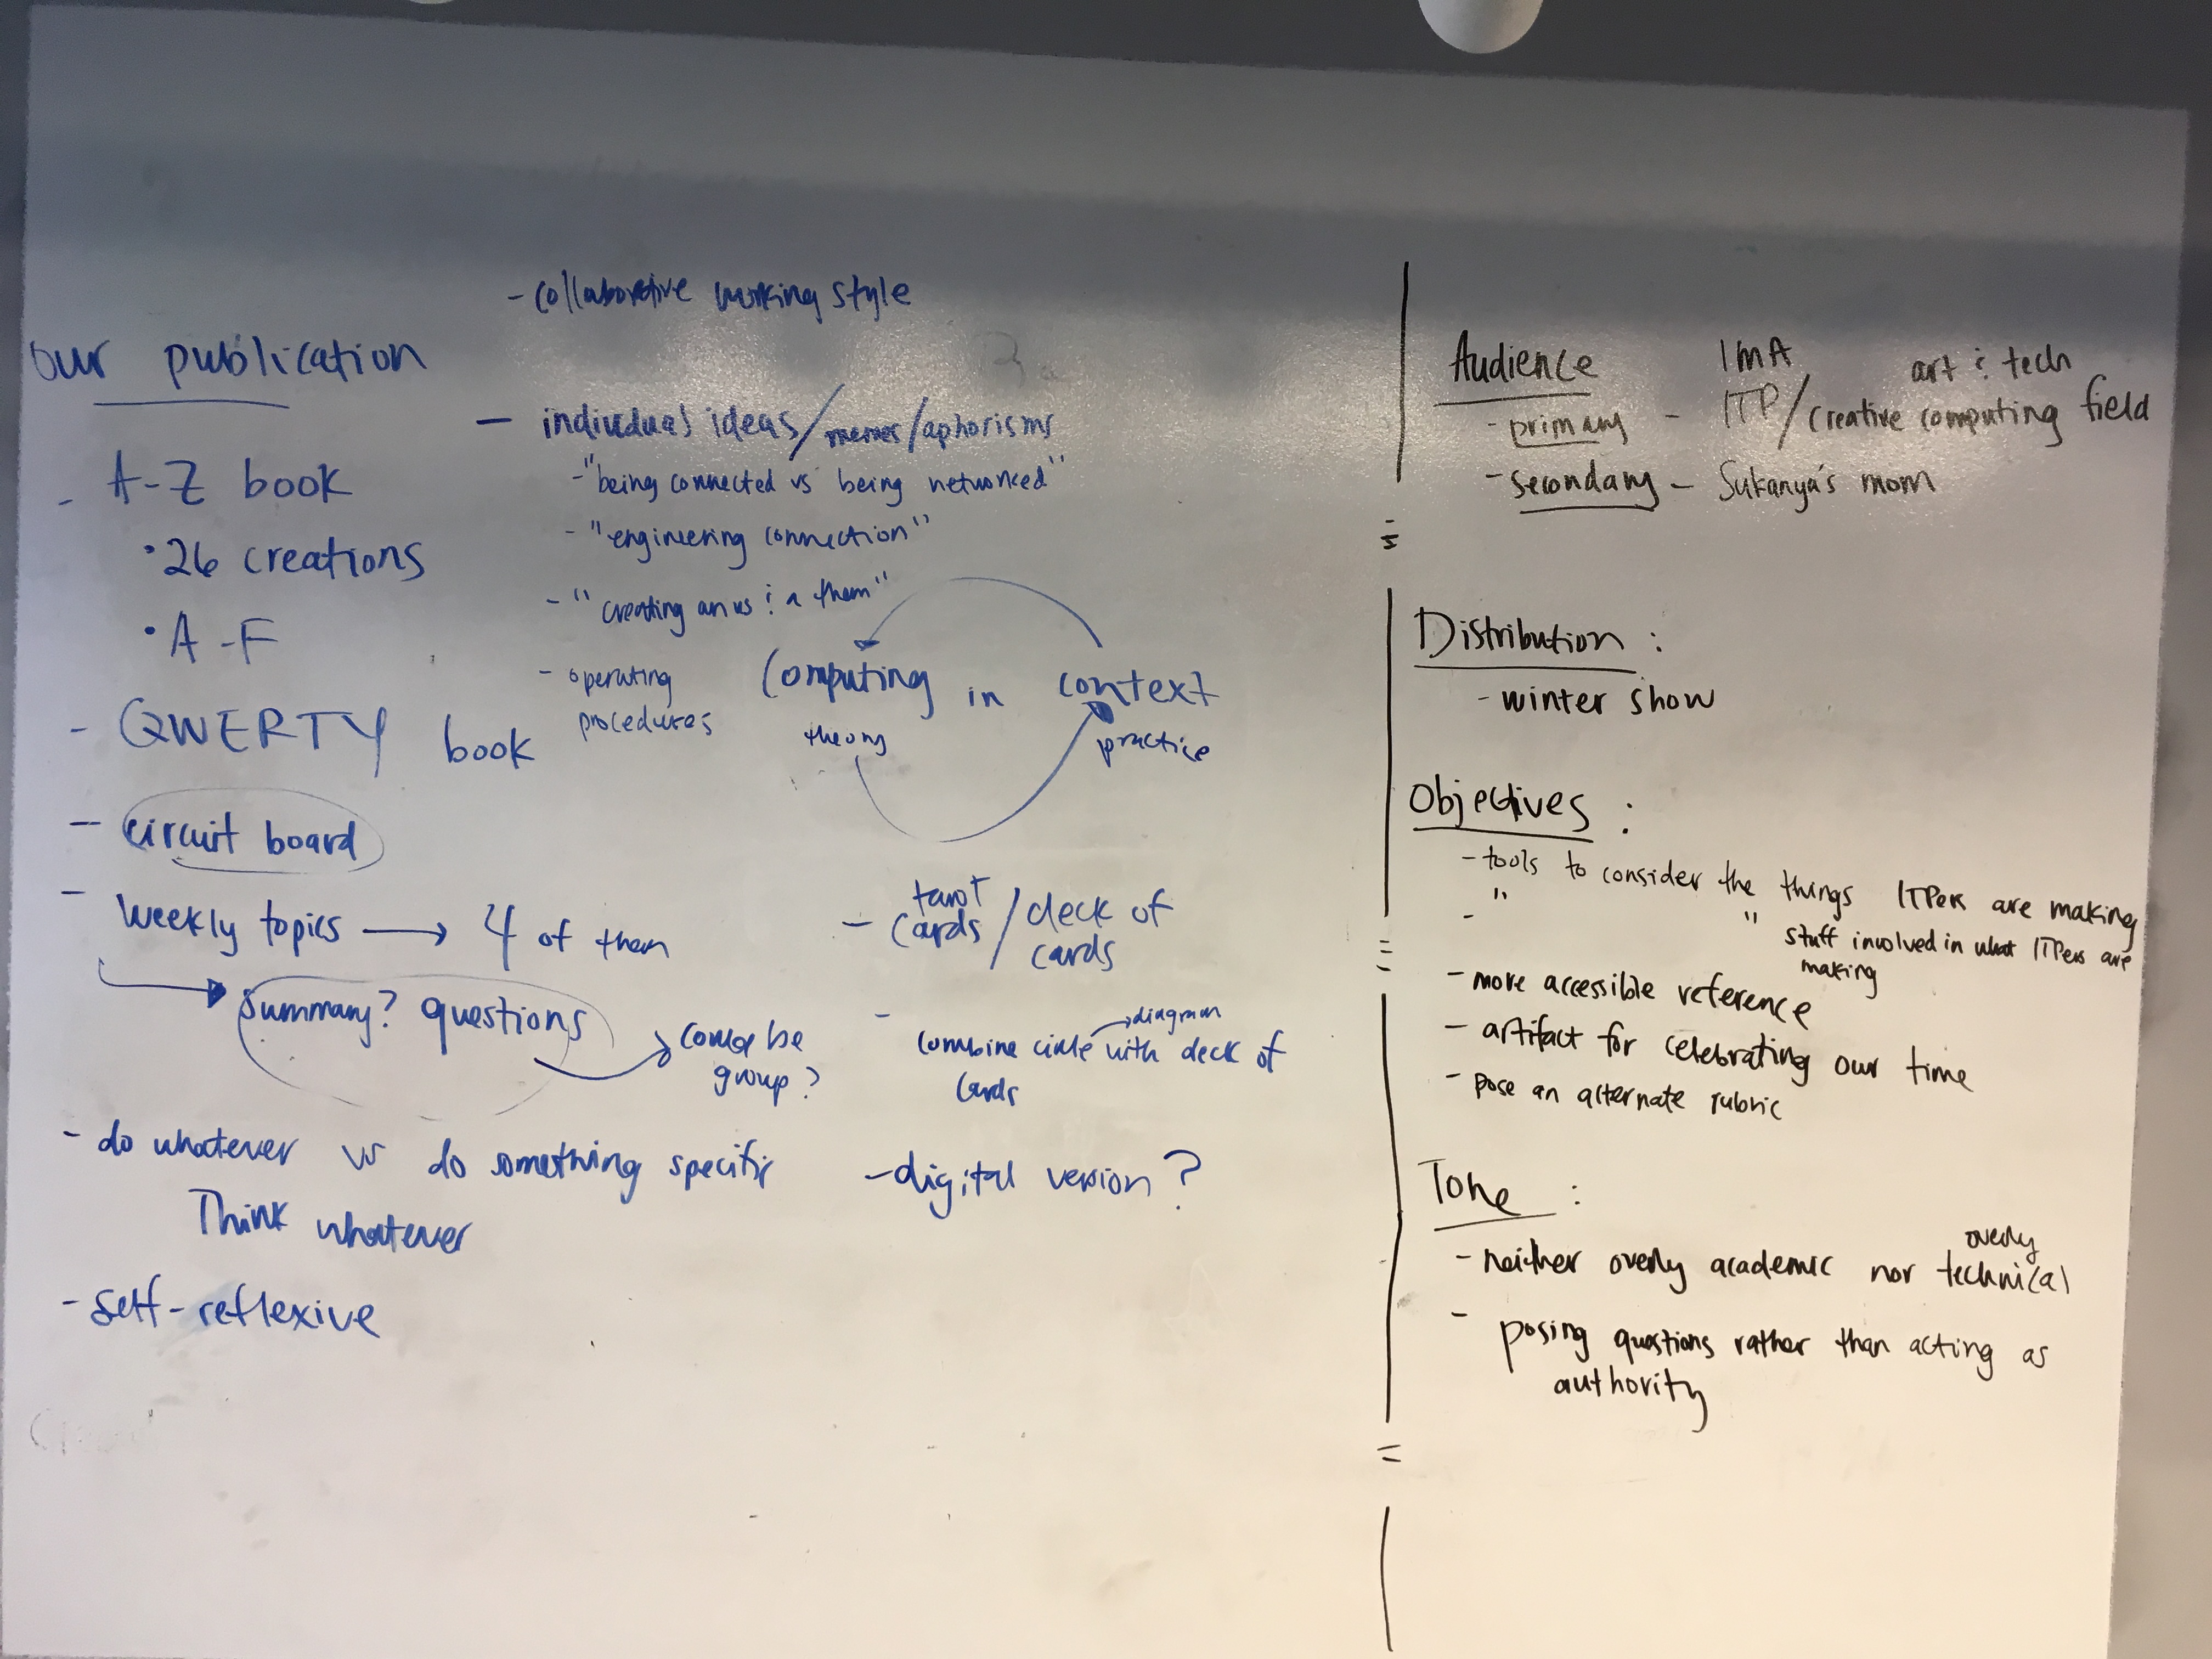 our publication
- A-Z book
• 26 creations
• A-F
- QWERTY book
- circuit board
- weekly topics → 4 of them
summary? questions
could be
group?
- do whatever vs do something specific
Think whatever
- self-reflexive
- collaborative working style
- individual ideas/memes/aphorisms
- "being connected vs being networked"
- "engineering connection"
- "creating an us & a them"
- operating
procedures
Computing in context
theory
practice
- tarot
cards / deck of
cards
- combine circle with deck of
diagram
cards
- digital version?
Audience
- primary - IMA
ITP/creative computing field
art & tech
- secondary - Sukanya's mom
Distribution:
- winter show
Objectives:
- tools to consider the things ITPers are making
- " " stuff involved in what ITPers are
making
- more accessible reference
- artifact for celebrating our time
- pose an alternate rubric
Tone:
- neither overly academic nor overly technical
- posing questions rather than acting as
authority